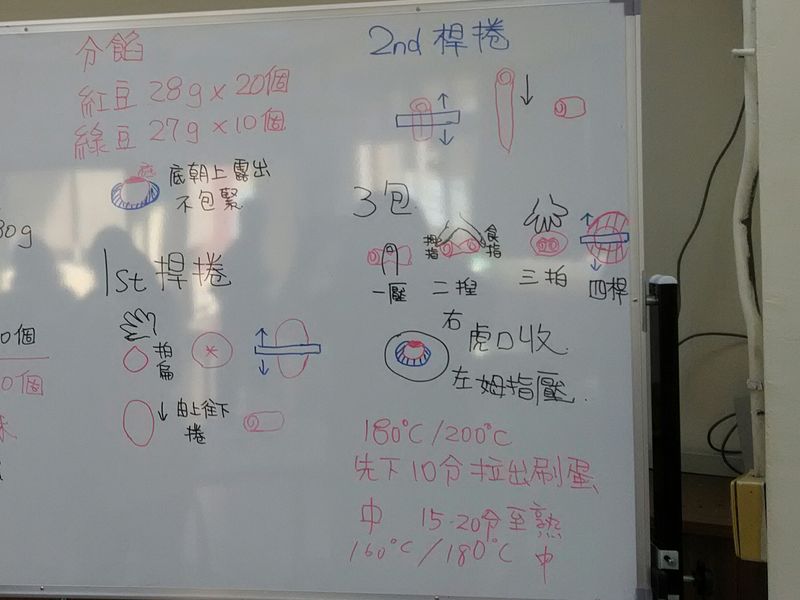 分餡
紅豆 28g×20個
綠豆 27g×10個
底朝上露出
不包緊
80g
1st 捍捲
0個
0個
拍扁
↓ 由上往下
捲
2nd 桿捲
3包.
拇指
食指
一壓
二揑
三拍
四桿
右
虎口收.
左姆指壓.
180°C/200°C
先下10分拉出刷蛋
中 15-20分至熟
160°C/180°C 中